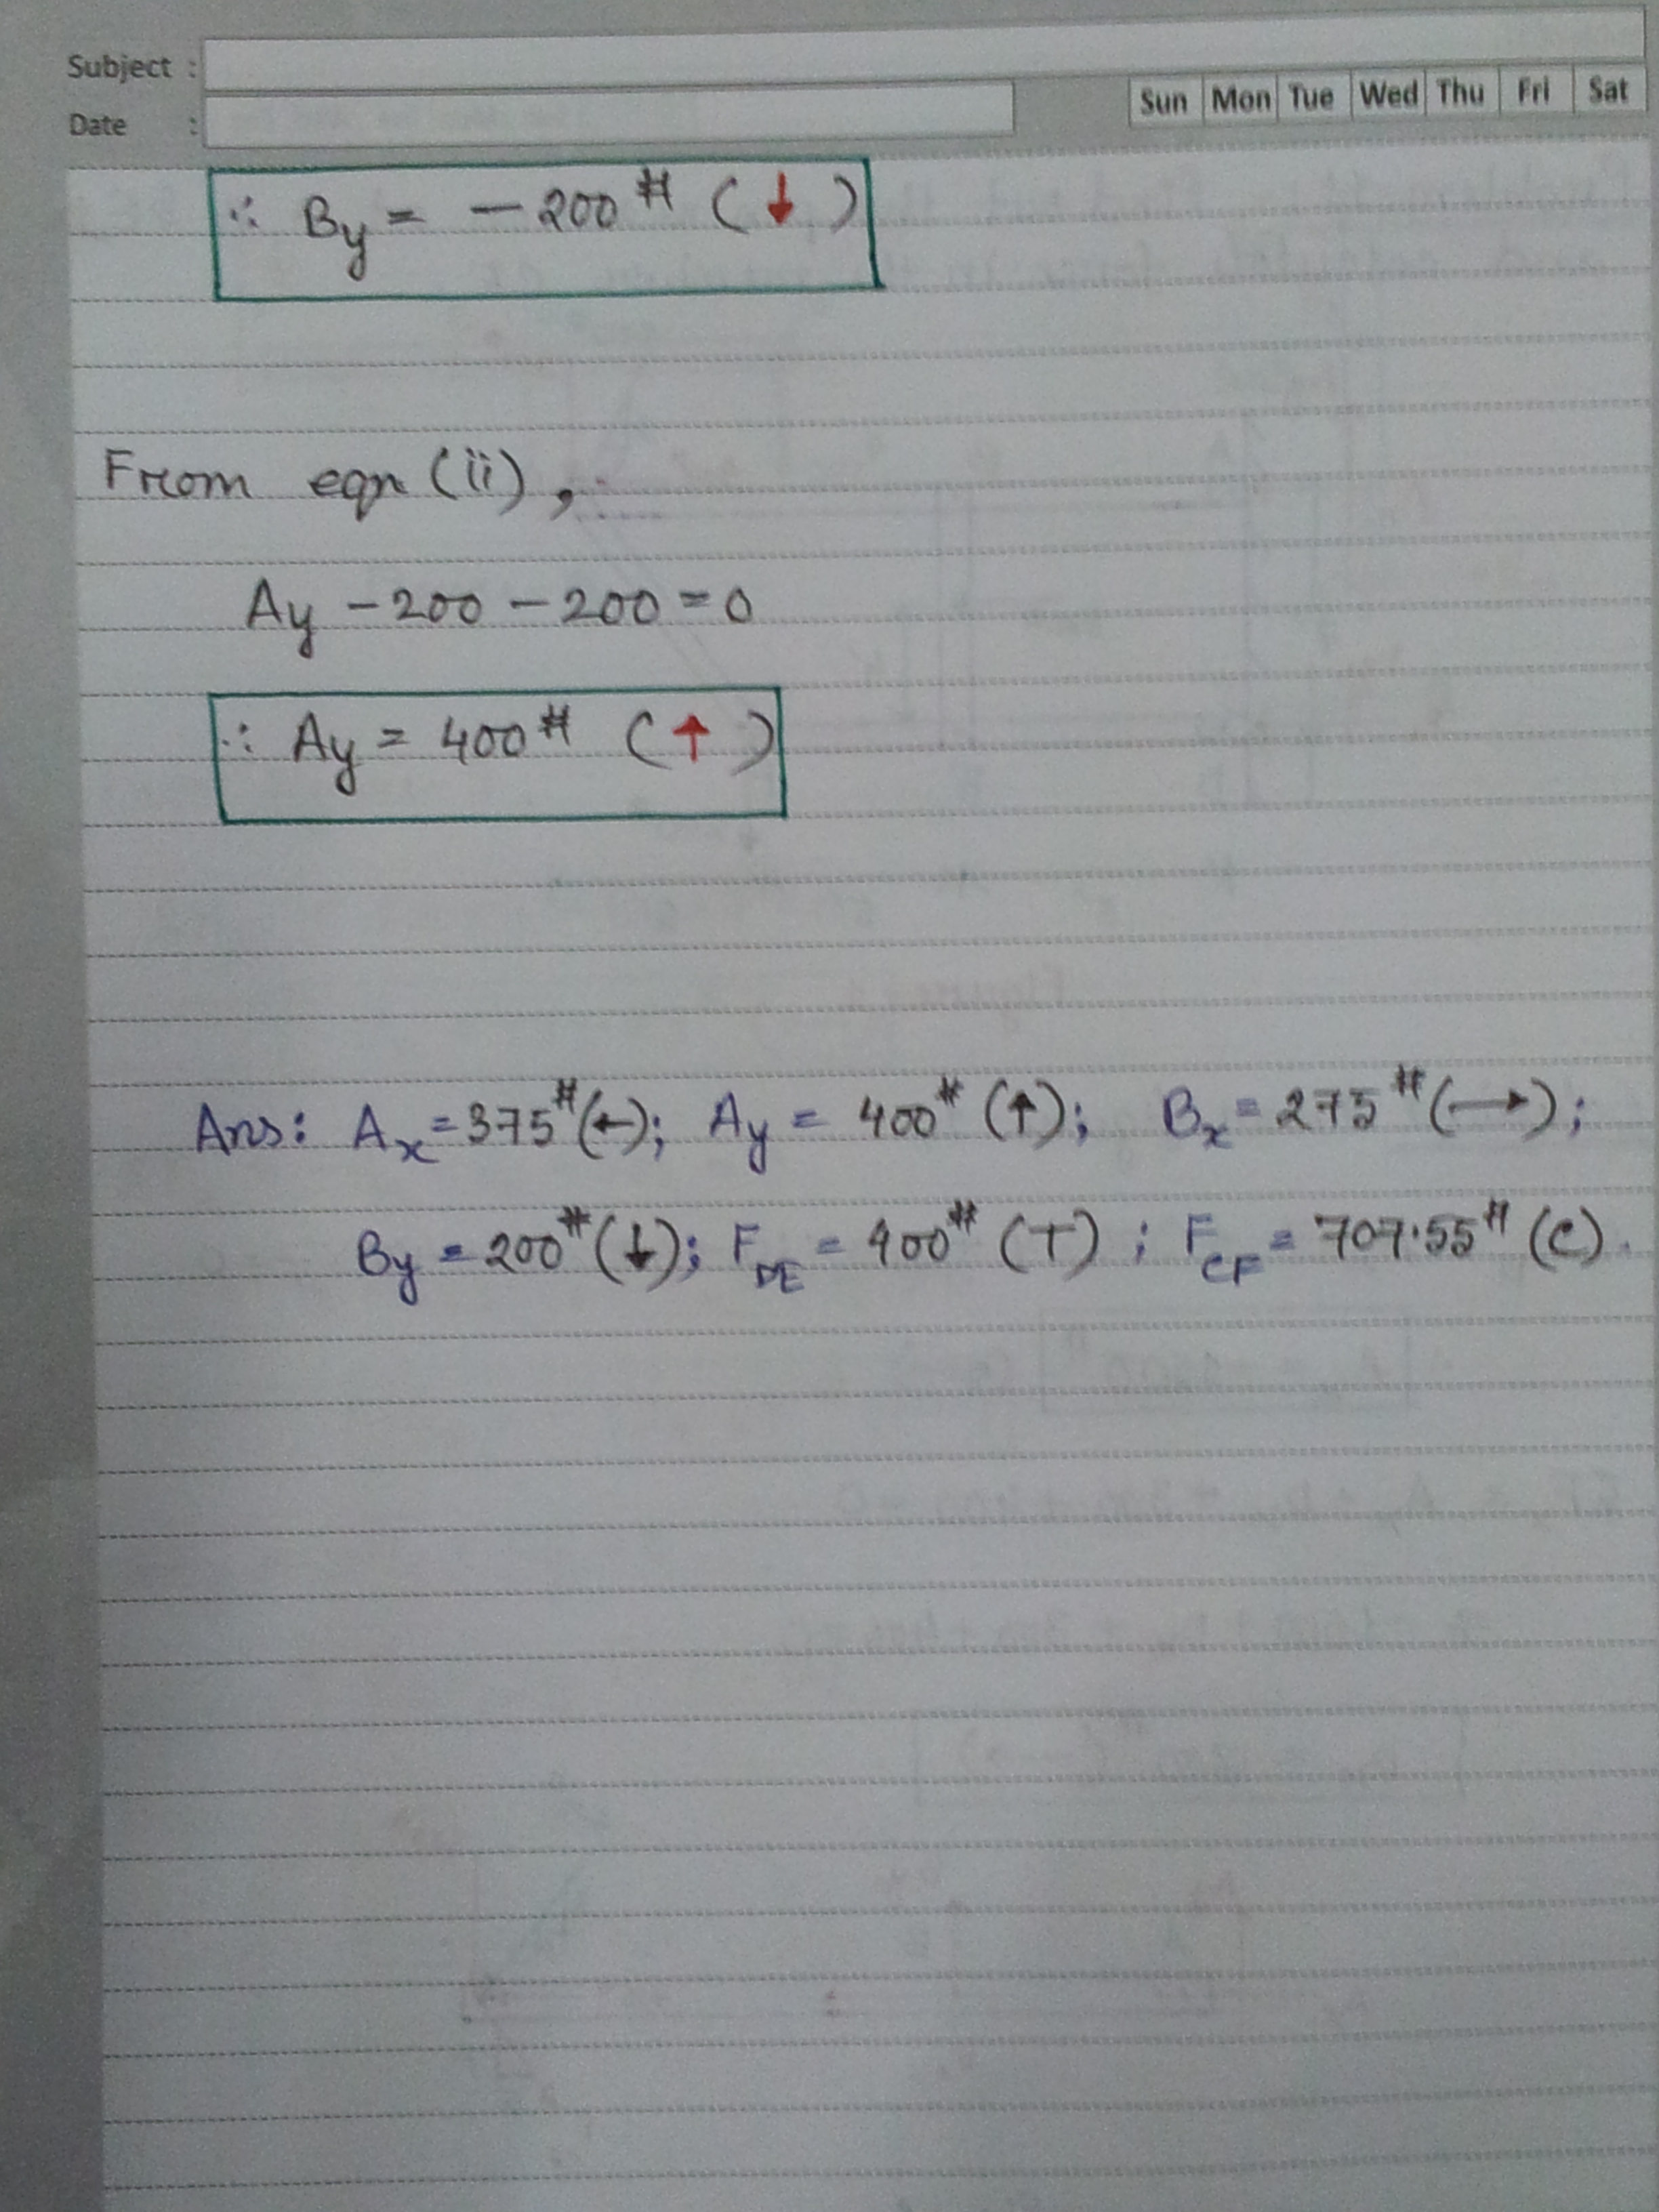 Subject :
Date :
Sun Mon Tue Wed Thu Fri Sat
∴ By = - 200 # (↓)
From eqn (ii),
Ay - 200 - 200 = 0
∴ Ay = 400 # (↑)
Ans: Ax = 375 # (←); Ay = 400 # (↑); Bx = 275 # (→);
By = 200 # (↓); F DE = 400 # (T) ; F CF = 707.55 # (C).